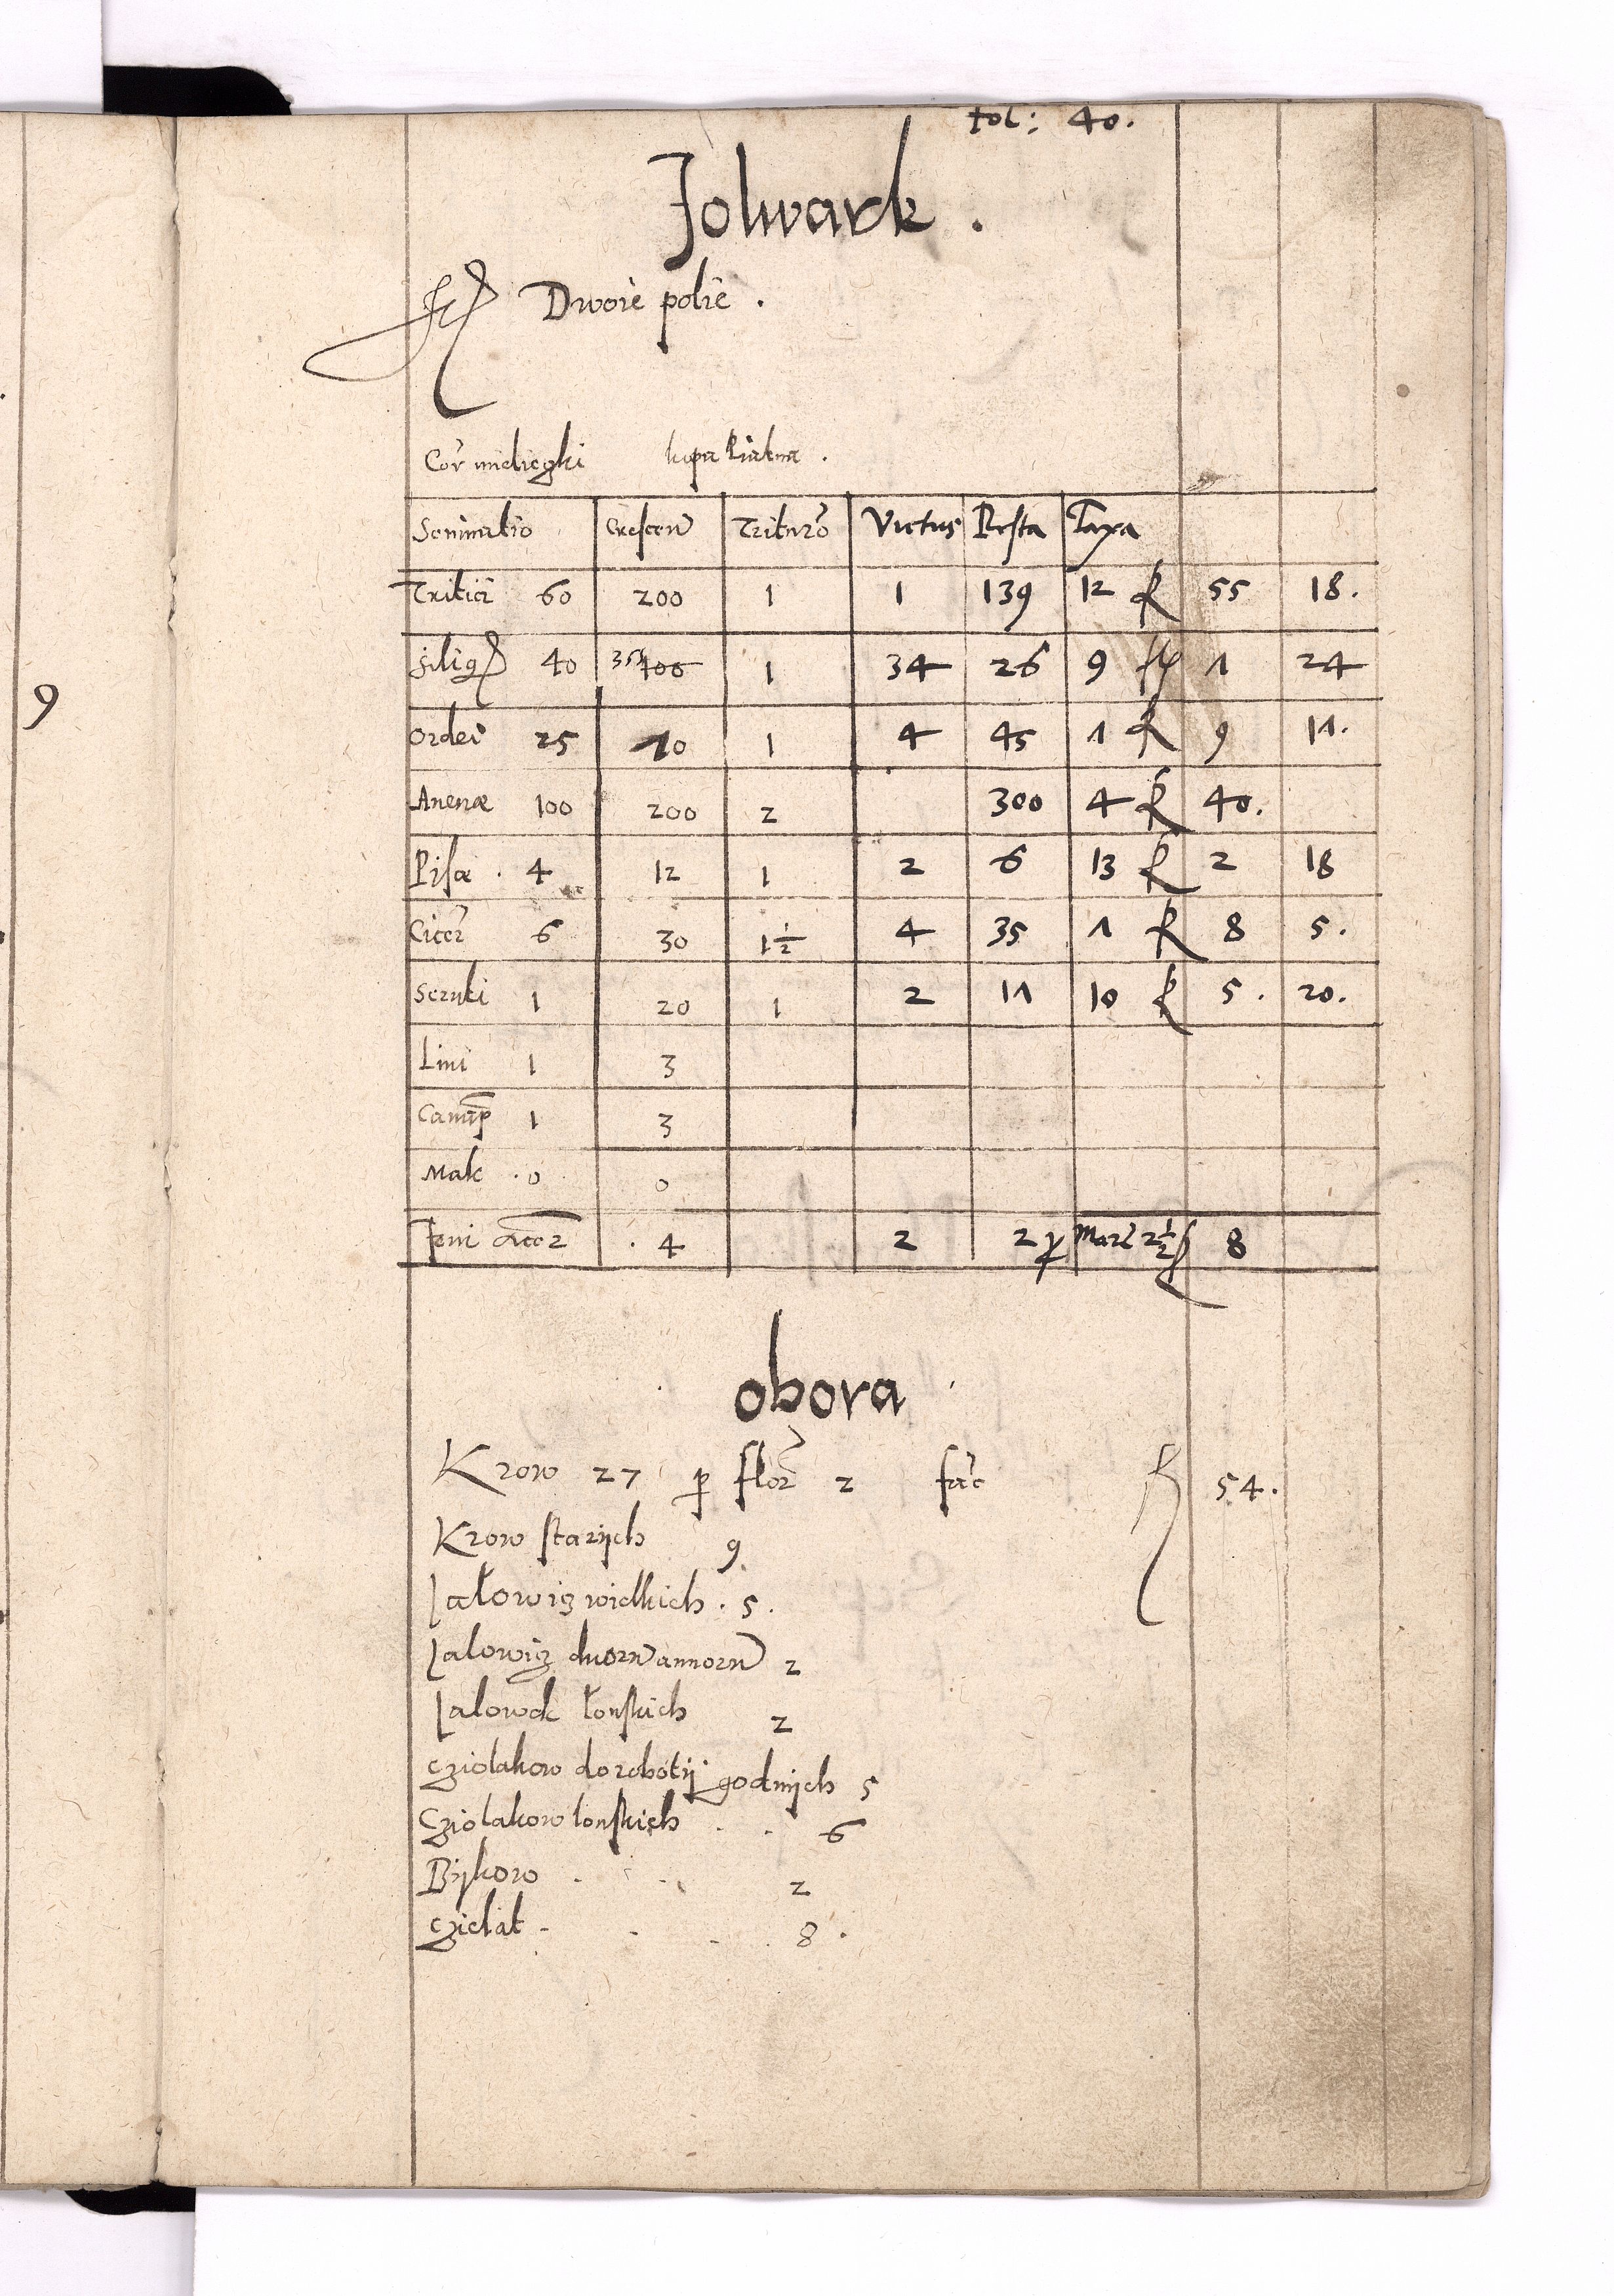 9
fol: 40.
Folwark.
Dwoie polie.
Cor mieliegki kopa
Seminatio Crescen Trituro Victus Resta Taxa
Tritici 60 200 1 1 139 12 fl 55 18.
Silig 40 100 1 34 26 9 fl 1 24
Ordei 25 70 1 4 45 1 fl 9 11.
Auenæ 100 200 2 300 4 fl 40.
Pisæ . 4 12 1 2 6 13 fl 2 18
Cicer 6 30 1½ 4 35 1 fl 8 5.
1 20 1 2 11 10 fl 5. 20.
Lini 1 3
Canap 1 3
Mak . 0 0
Feni . 4 2 2 Mar 2½ fl 8
obora
Krow 27 p flor 2 fac fl 54.
Krow starych 9
Jałowiz wielkich . 5.
Jalowiz duorum annorum 2
Jalowek łonskich 2
Cziolakow do roboty godnych 5
Cziolakow lonskich . . 6
Bykow . . . 2
Czieląt . . . . 8.